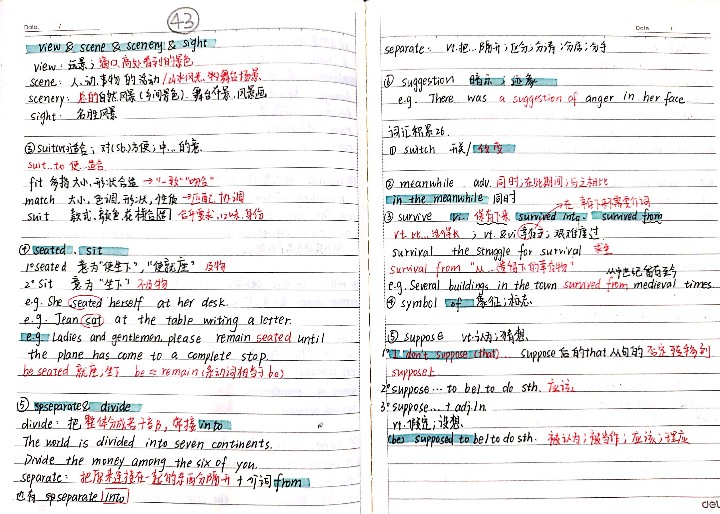 43
Date.
view & scene & scenery & sight
view: 远景; 窗口,高处看到的景色
scene: 人,动,事物的活动/山水风光,物,舞台场景
scenery: 总的自然风景(乡间景色).舞台布景,风景画
sight: 名胜风景
③suit 适合; 对(sb.)方便; 中…的意.
suit…to 使…适合
fit 多指大小,形状合适 → "一致""吻合"
match 大小,色调,形状,性质 → 匹配,协调
suit 款式,颜色,花样合 合乎要求,口味,身份
④ seated . sit
1° seated 意为"使坐下","使就座" 及物
2° Sit 意为"坐下" 不及物
e.g. She seated herself at her desk.
e.g. Jean sat at the table writing a letter.
e.g. Ladies and gentlemen, please remain seated until
the plane has come to a complete stop.
be seated 就座;坐下 be ≈ remain (系动词相当于be)
⑤ spseparate & divide
divide: 把整体分成若干部分,常接 into
The world is divided into seven continents.
Divide the money among the six of you.
separate: 把原来连接在一起的东西分隔开 + 介词 from
也有 spseparate into
Date.
separate: vt.把…隔开;区分;分清;分居;分手
⑥ suggestion 暗示;迹象
e.g. There was a suggestion of anger in her face.
词汇积累26.
① switch 开关/改变
② meanwhile adv. 同时;在此期间;与之相比
in the meanwhile 同时
③ survive vi. 幸存下来 survived into. survived from
vt. 比…活得长; vt.&vi 幸存; 艰难度过
survival the struggle for survival 求生
survival from "从…遗留下的幸存物" 从中世纪留存至今
e.g. Several buildings in the town survived from medieval times.
④ symbol of 象征;标志.
⑤ suppose vt.认为;猜想.
1° I don't suppose (that)… suppose后的that从句的否定转移到
suppose上
2° suppose… to be/to do sth. 应该.
3° suppose… + adj./n.
vt. 假定;设想.
(be) supposed to be/to do sth. 被认为;被当作;应该;理应